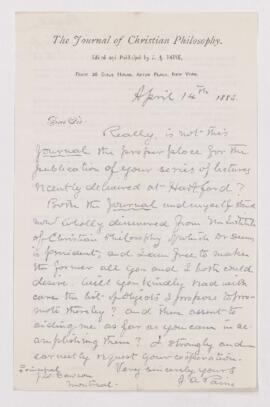 The Journal of Christian Philosophy.
Edited and Published by J. A. PAINE,
Room 30 Bible House, Astor Place, New York.
April 14th 1883.
Dear Sir:
Really, is not this
Journal the proper place for the
publication of your series of lectures
recently delivered at Hartford?
Both the Journal and myself stand
now wholly dissevered from the Institute
of Christian Philosophy of which Dr Deems
is president, and I am free to make
the former all you and I both could
desire. Will you kindly read with
care the list of objects I propose to pro-
mote thereby? and then assent to
aiding me as far as you can in ac-
complishing them? I strongly and
earnestly request your cooperation.
Very sincerely yours
Principal J. A. Paine
Dawson
Montreal.